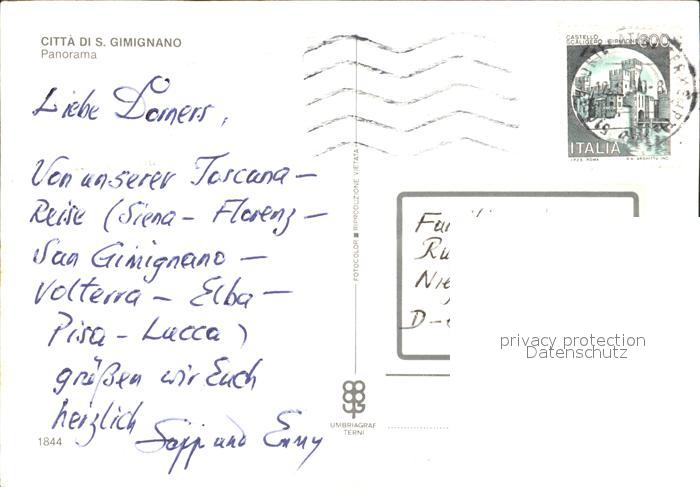 CITTÀ DI S. GIMIGNANO
Panorama
Liebe Domers,
Von unserer Toscana –
Reise (Siena – Florenz –
San Gimignano –
Volterra – Elba –
Pisa – Lucca)
grüßen wir Euch
herzlich
Sepp und Enny
1844
FOTOCOLOR RIPRODUZIONE VIETATA
UMBRIAGRAF
TERNI
CASTELLO
SCALIGERO
ITALIA
Fa
Ru
Nie
D-
privacy protection
Datenschutz